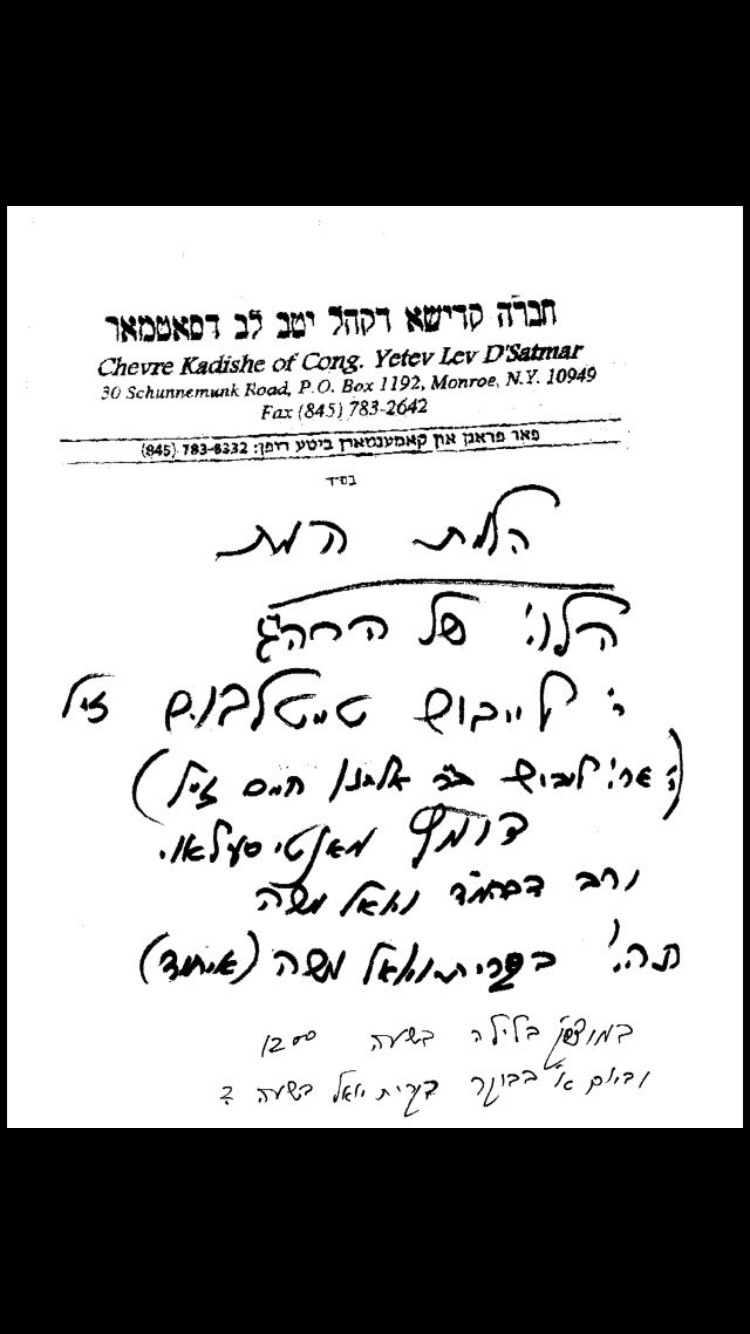 חברה קדישא דקהל יטב לב דסאטמאר
Chevre Kadishe of Cong. Yetev Lev D'Satmar
30 Schunnemunk Road, P.O. Box 1192, Monroe, N.Y. 10949
Fax (845) 783-2642
פאר פראגן און קאמענטארן ביטע רופן: 783-8332 (845)
בס״ד
הלות המת
הלוי' של הרה״ג
ר' לייבוש טייטלבוים ז״ל
בר אלחנן חיים ז״ל)
דומ״ץ מאנטיסעלאוי
ורב דבהמ״ד ויואל משה
תהי' בקרית יואל משה (איחוד)
במוצש״ק בלילה בשעה 12⁰⁰
וביום א' בבוקר בקרית יואל בשעה